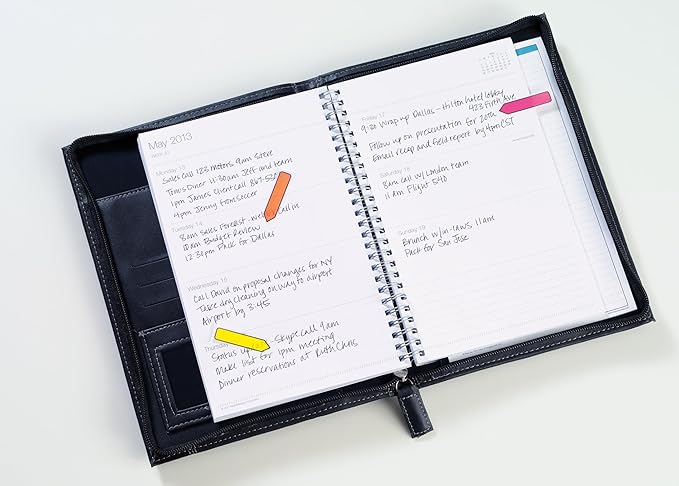 May 2013
Monday 13
Sales Call 123 Motors 9am Steve
Tom's Diner 11:30am Jeff and team
1pm James Client Call 867-5
4pm Jenny from Soccer
Tuesday 14
8am Sales Forecast - Call in
10am Budget Review
12:30pm Pack for Dallas
Wednesday 15
Call David on proposal changes for NY
Take dry cleaning on way to airport
Airport by 3:45
Thursday
Status - Skype call 9am
Make list for 1pm meeting
Dinner reservations at Ruth Chris
Friday 17
9:30 Wrap up Dallas - Hilton hotel lobby
423 Fifth Ave
Follow up on presentation for 20th
Email recap and field report by 4pm CST
Saturday 18
8am call w/ London team
11am Flight 540
Sunday 19
Brunch w/ in-laws 11am
Pack for San Jose